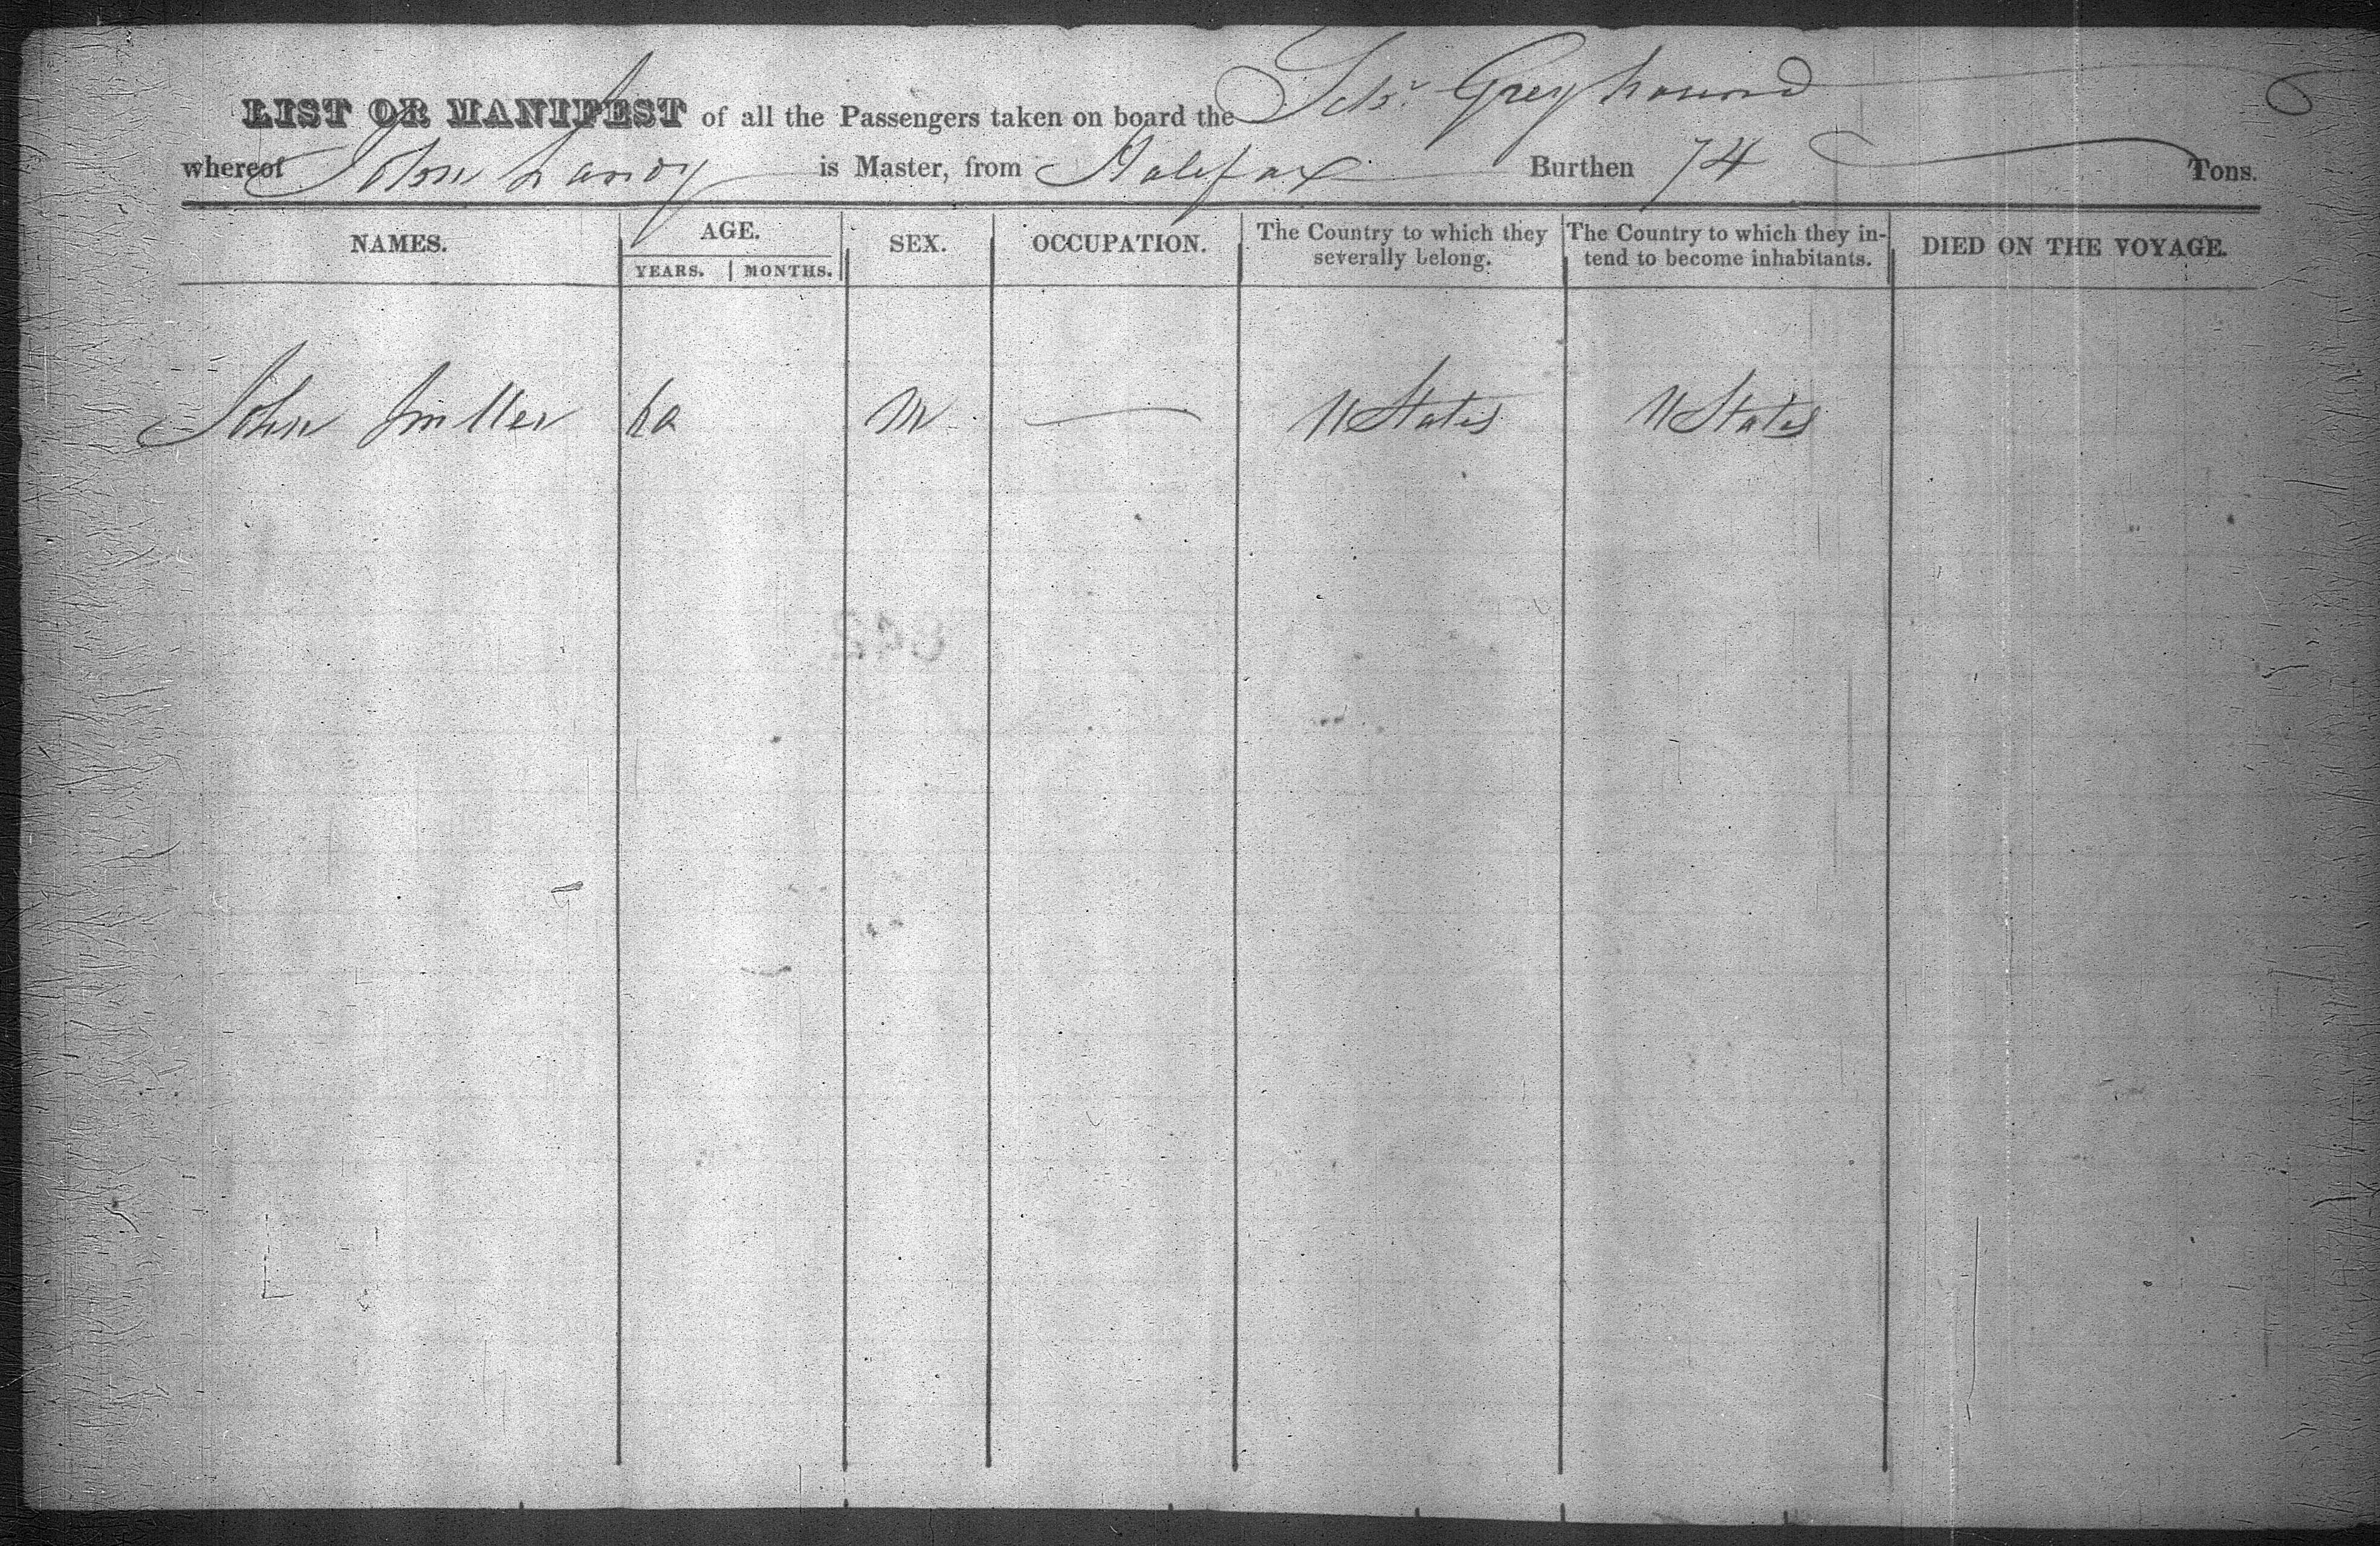 LIST OR MANIFEST of all the Passengers taken on board the Schr Greyhound
whereof John Landy is Master, from Halifax Burthen 74 Tons.
NAMES. AGE. SEX. OCCUPATION. The Country to which they severally belong. The Country to which they in-tend to become inhabitants. DIED ON THE VOYAGE.
YEARS. MONTHS.
John Miller M — U States U States